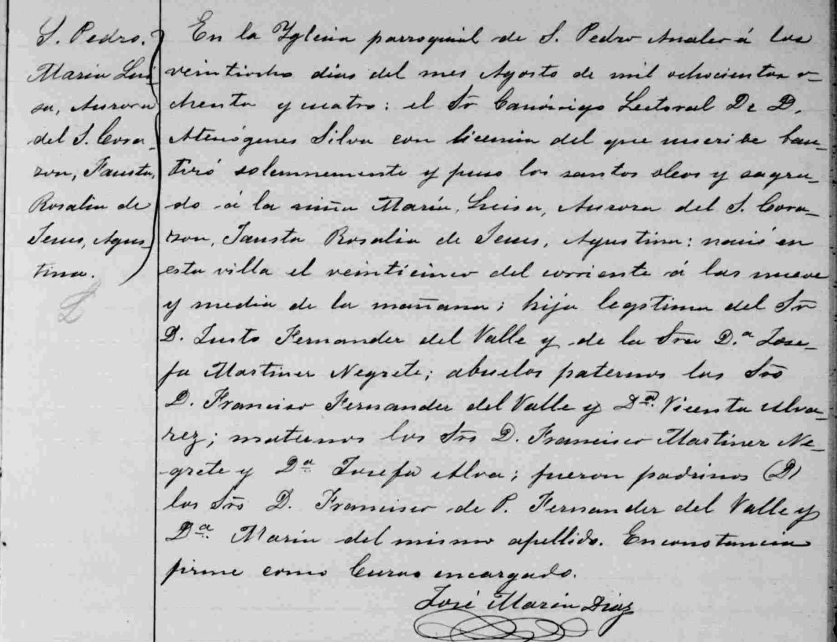 S. Pedro.
María Lui
sa, Aurora
del S. Cora-
zon, Fausta,
Rosalia de
Jesus, Agus
tina.
En la Yglesia parroquial de S. Pedro Analco á los
veintiocho dias del mes Agosto de mil ochocientos o-
chenta y cuatro: el Sr Canónigo Lectoral Dr D.
Atenógenes Silva con licencia del que suscribe bau-
tizó solemnemente y puso los santos oleos y sagra-
do á la niña María, Luisa, Aurora del S. Cora-
zon, Fausta Rosalia de Jesus, Agustina: nació en
esta villa el veinticinco del corriente á las nueve
y media de la mañana; hija legitima del Sr
D. Justo Fernandez del Valle y de la Sra D.ª Jose-
fa Martinez Negrete; abuelos paternos los Srs
D. Francisco Fernandez del Valle y Dª. Vicenta Alva-
rez; maternos los Srs D. Francisco Martinez Ne-
grete y Dª Josefa Alva; fueron padrinos (D)
los Srs D. Francisco de P. Fernandez del Valle y
Dª. María del mismo apellido. En constancia
firmé como Cura encargado.
José María Diaz